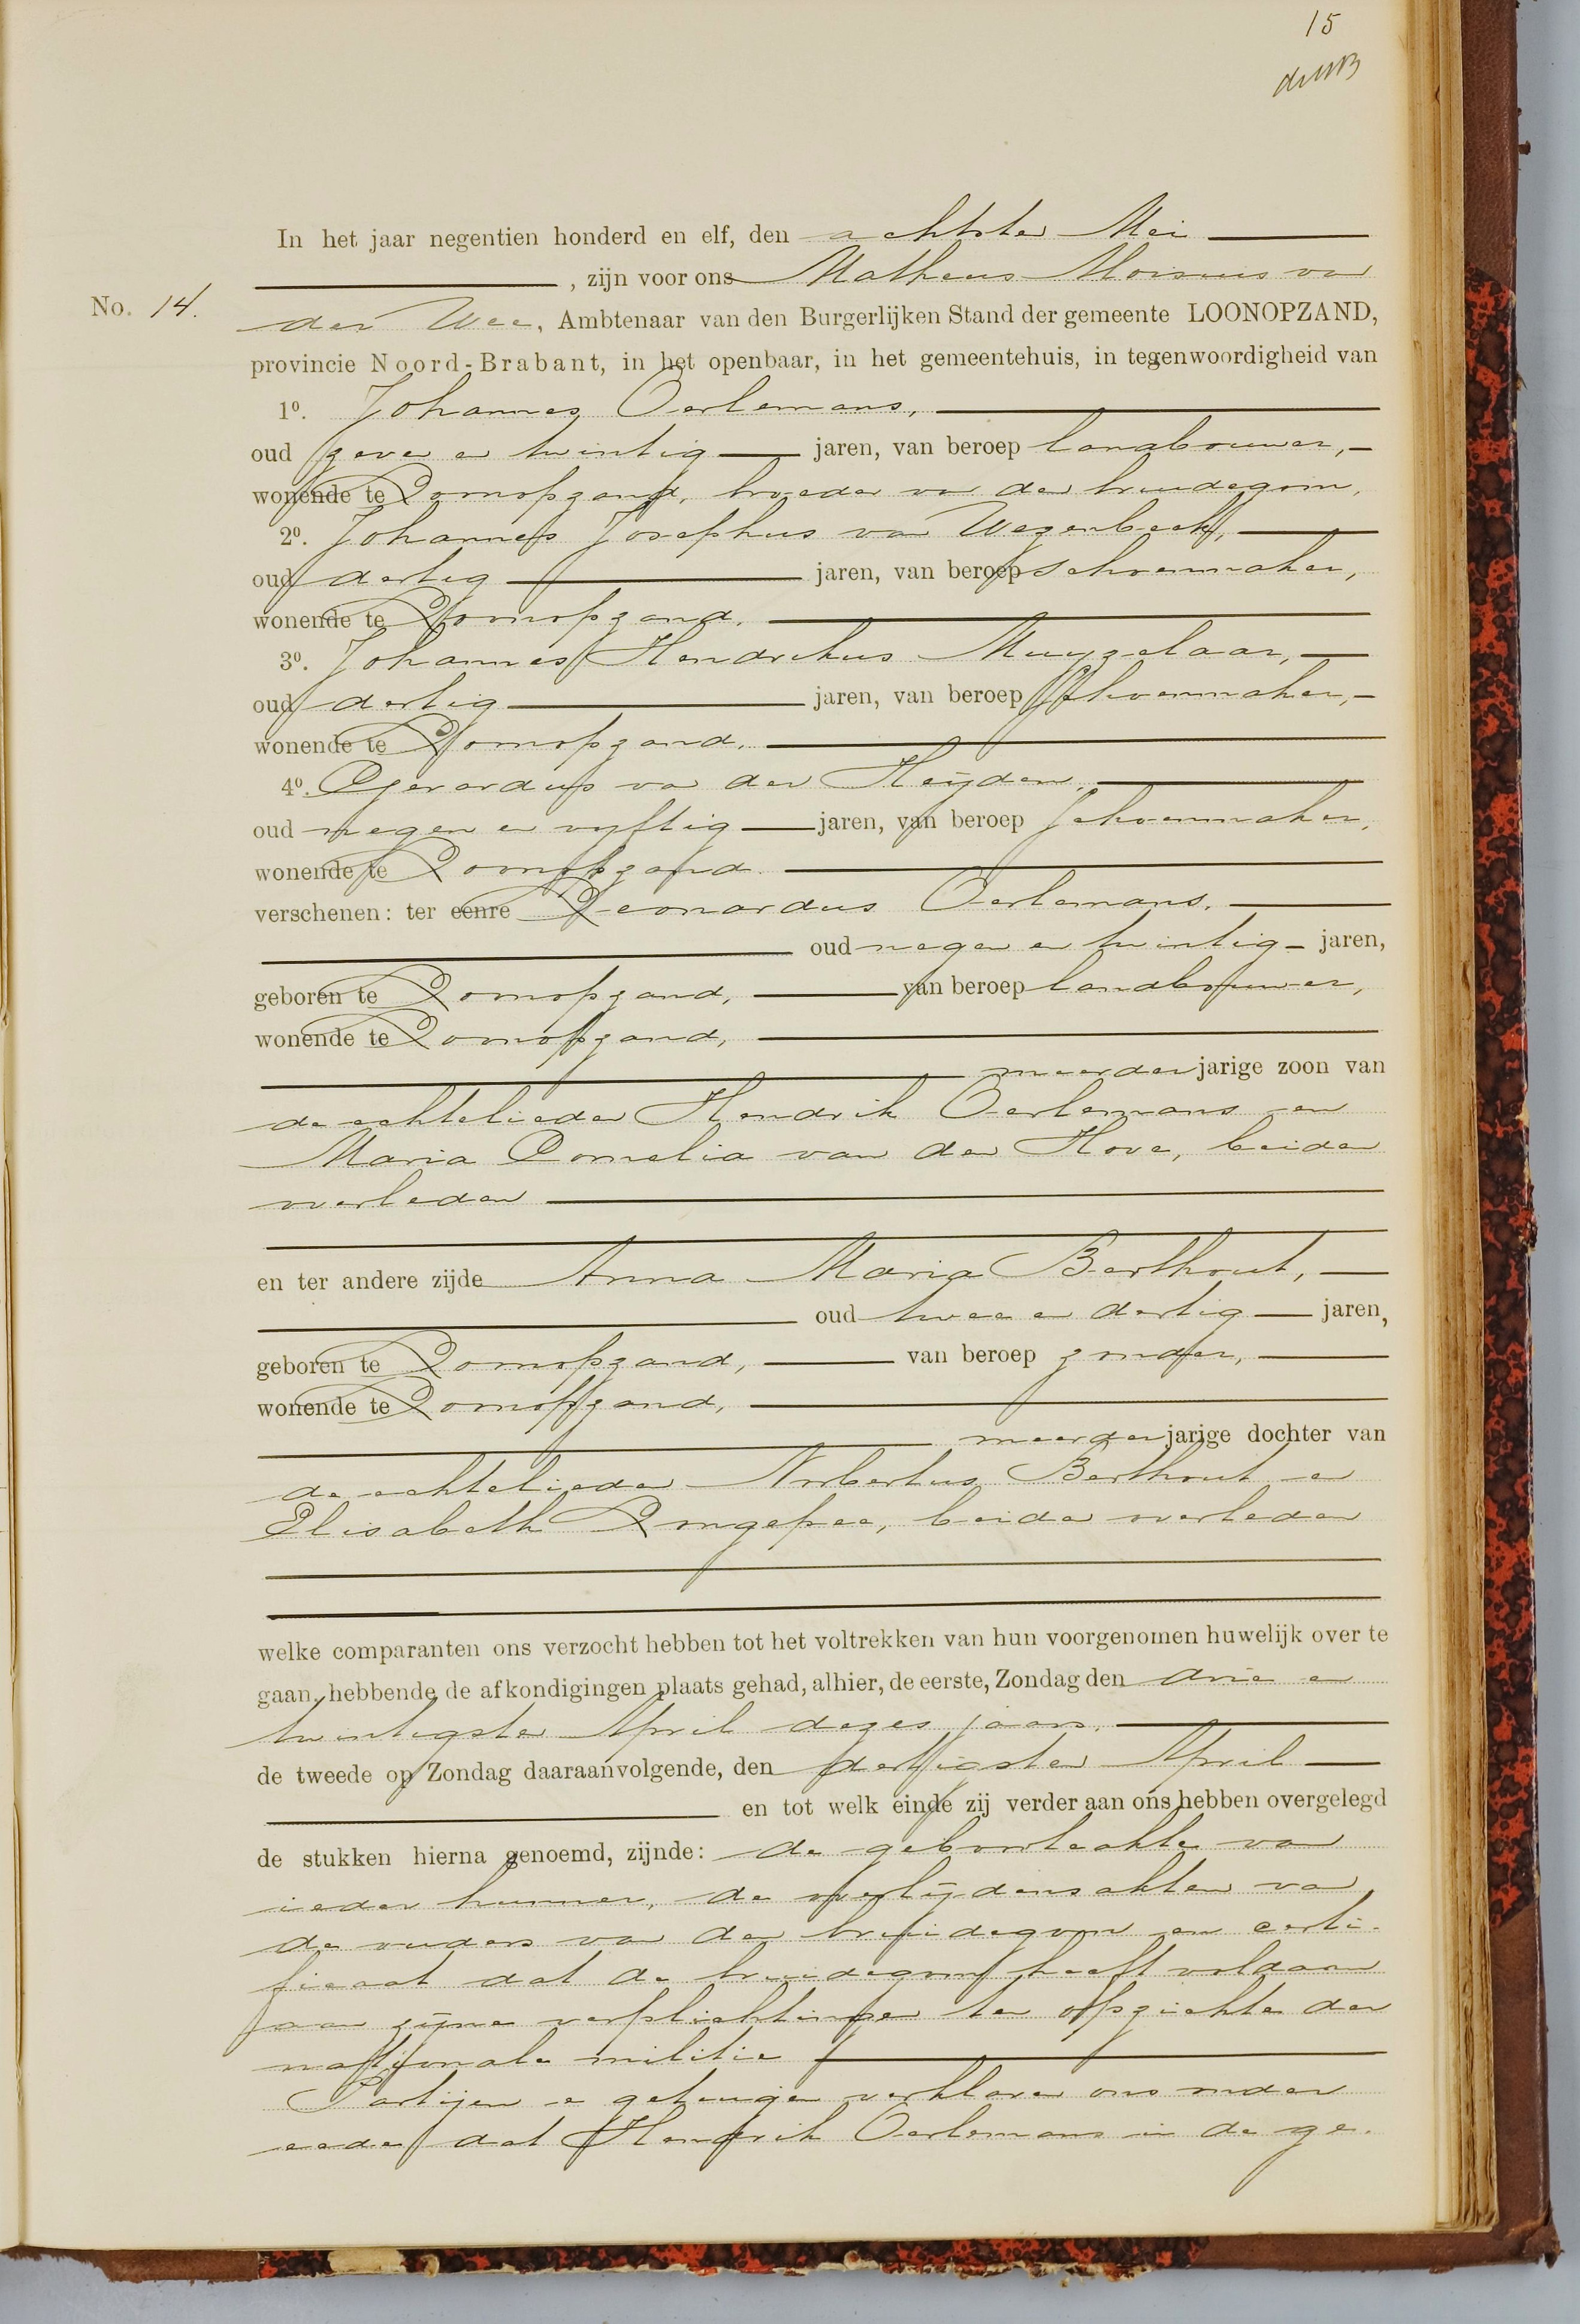 15
In het jaar negentien honderd en elf, den achtsten Mei
, zijn voor ons Matheus Aloisius van
No. 14.
der Wee, Ambtenaar van den Burgerlijken Stand der gemeente LOONOPZAND,
provincie Noord-Brabant, in het openbaar, in het gemeentehuis, in tegenwoordigheid van
1º. Johannes Oerlemans,
oud zeven en twintig jaren, van beroep landbouwer,
wonende te Loonopzand, broeder van den bruidegom,
2º. Johannes Josephus van Wezenbeek,
oud dertig jaren, van beroep schoenmaker,
wonende te Loonopzand,
3º. Johannes Hendrikus Muyzelaar,
oud dertig jaren, van beroep schoenmaker,
wonende te Loonopzand,
4º. Gerardus van der Heijden,
oud negen en vyftig jaren, van beroep schoenmaker,
wonende te Loonopzand.
verschenen: ter eenre Leonardus Oerlemans,
oud negen en twintig jaren,
geboren te Loonopzand, van beroep landbouwer,
wonende te Loonopzand,
meerderjarige zoon van
de echtelieden Hendrik Oerlemans en
Maria Cornelia van den Hove, beiden
overleden
en ter andere zijde Anna Maria Berthout,
oud twee en dertig jaren,
geboren te Loonopzand, van beroep zonder,
wonende te Loonopzand,
meerderjarige dochter van
de echtelieden Norbertus Berthout en
Elisabeth Longepee, beiden overleden
welke comparanten ons verzocht hebben tot het voltrekken van hun voorgenomen huwelijk over te
gaan, hebbende de afkondigingen plaats gehad, alhier, de eerste, Zondag den drie en
twintigsten April dezes jaars,
de tweede op Zondag daaraanvolgende, den dertigsten April
en tot welk einde zij verder aan ons hebben overgelegd
de stukken hierna genoemd, zijnde: de geboorteakten van
ieder hunner, de overlijdensakten van
de ouders van den bruidegom en certi-
ficaat dat de bruidegom heeft voldaan
aan zijne verplichtingen ten opzichte der
nationale militie
Partijen en getuigen verklaren ons onder
eede, dat Hendrik Oerlemans in de ge-